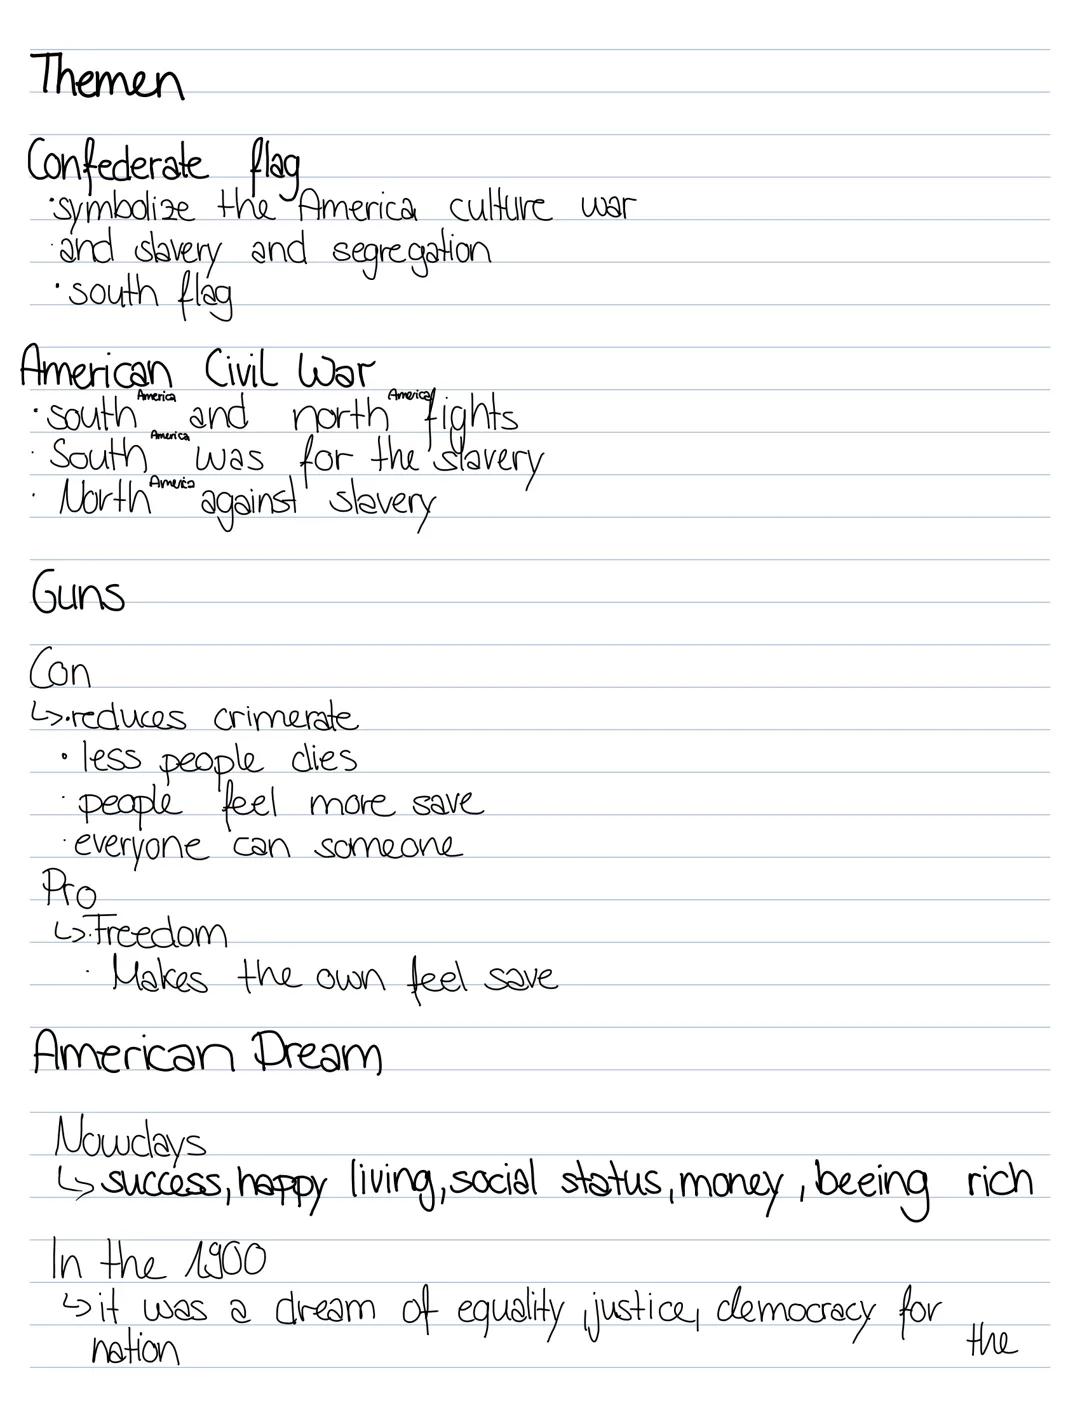 Themen
Confederate flag
·symbolize the America culture war
·and slavery and segregation
·south flag
American Civil War
·south America and north America fights
·South America was for the slavery
·North America against slavery
Guns
Con
↳·reduces crimerate
·less people dies
·people feel more save
·everyone can someone
Pro
↳·Freedom
·Makes the own feel save
American Dream
Nowdays
↳success, happy living, social status, money, beeing rich
In the 1900
↳it was a dream of equality, justice, democracy for the
nation